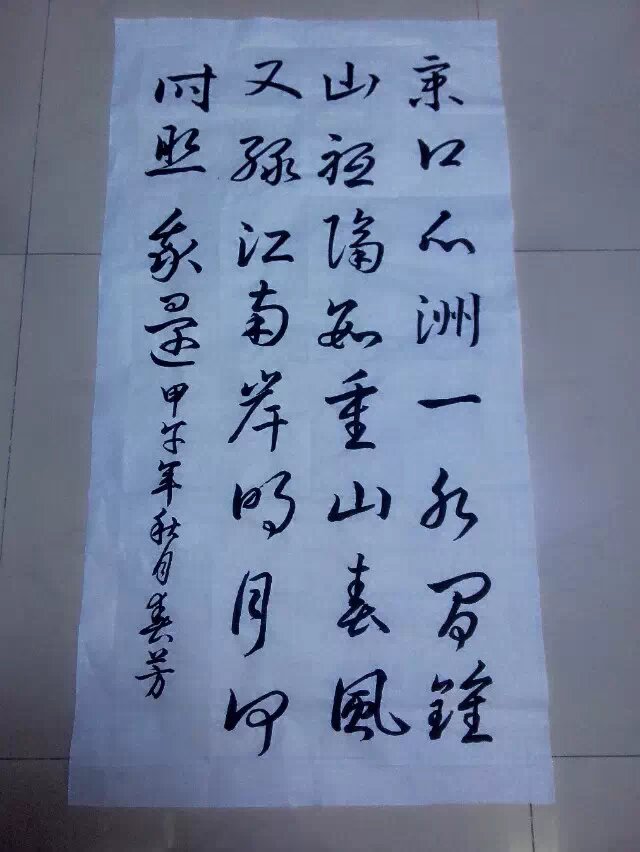 京口瓜洲一水間鍾
山祗隔数重山春風
又綠江南岸明月何
時照我還甲午年秋月芳